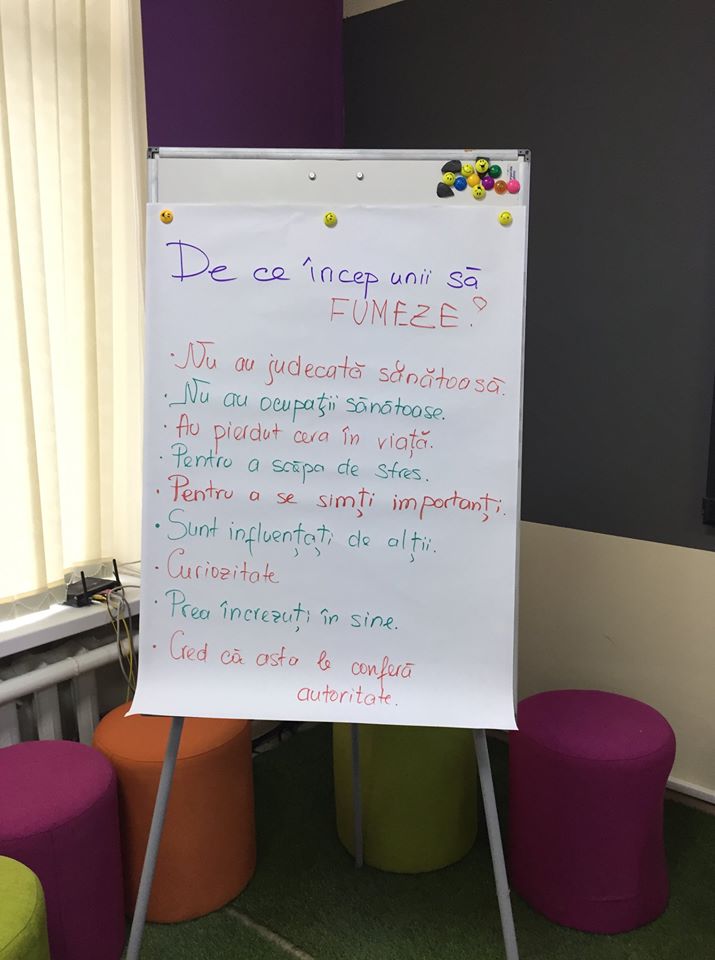 De ce încep unii să
FUMEZE?
· Nu au judecată sănătoasă.
· Nu au ocupații sănătoase.
· Au pierdut ceva în viață.
· Pentru a scăpa de stres.
· Pentru a se simți importanți.
· Sunt influențați de alții.
· Curiozitate
· Prea încrezuți în sine.
· Cred că asta le conferă
autoritate.